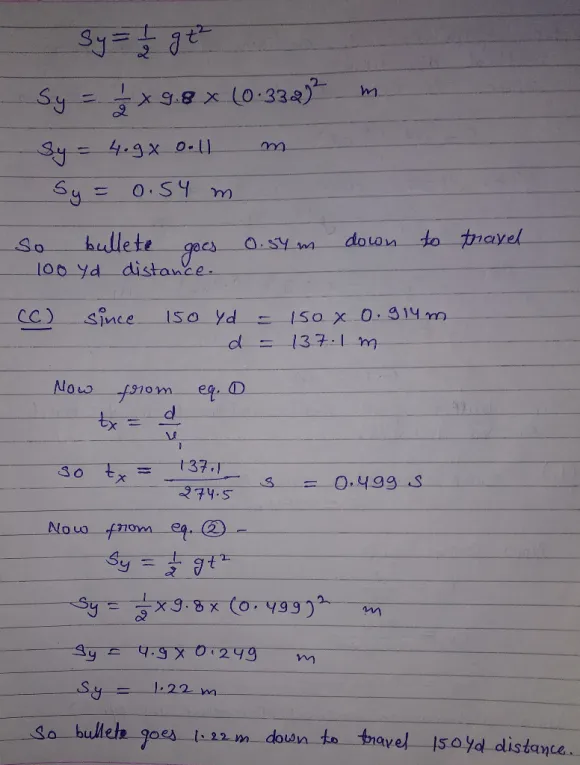 Sy = 1/2 gt²
Sy = 1/2 × 9.8 × (0.332)² m
Sy = 4.9 × 0.11 m
Sy = 0.54 m
So bullete goes 0.54 m down to travel
100 Yd distance.
(C) Since 150 Yd = 150 × 0.914 m
d = 137.1 m
Now from eq. ①
tx = d/v₁
so tx = 137.1/274.5 s = 0.499 s
Now from eq. ② -
Sy = 1/2 gt²
Sy = 1/2 × 9.8 × (0.499)² m
Sy = 4.9 × 0.249 m
Sy = 1.22 m
So bullete goes 1.22 m down to travel 150 Yd distance.